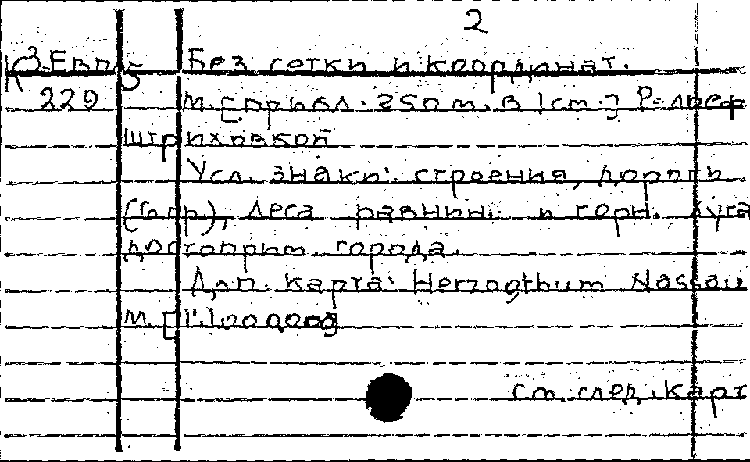 2
К³ Евр 5 Без сетки и координат.
229 М. [прибл. 250 m. в 1 cm.] Рельеф
штриховкой
Усл. знаки: строения, дороги
(2 гр), леса равнин. и горн. луга
достоприм. города.
Доп. карта: Herzogthum Nassau
М. [1:1000000]
См. след. карт